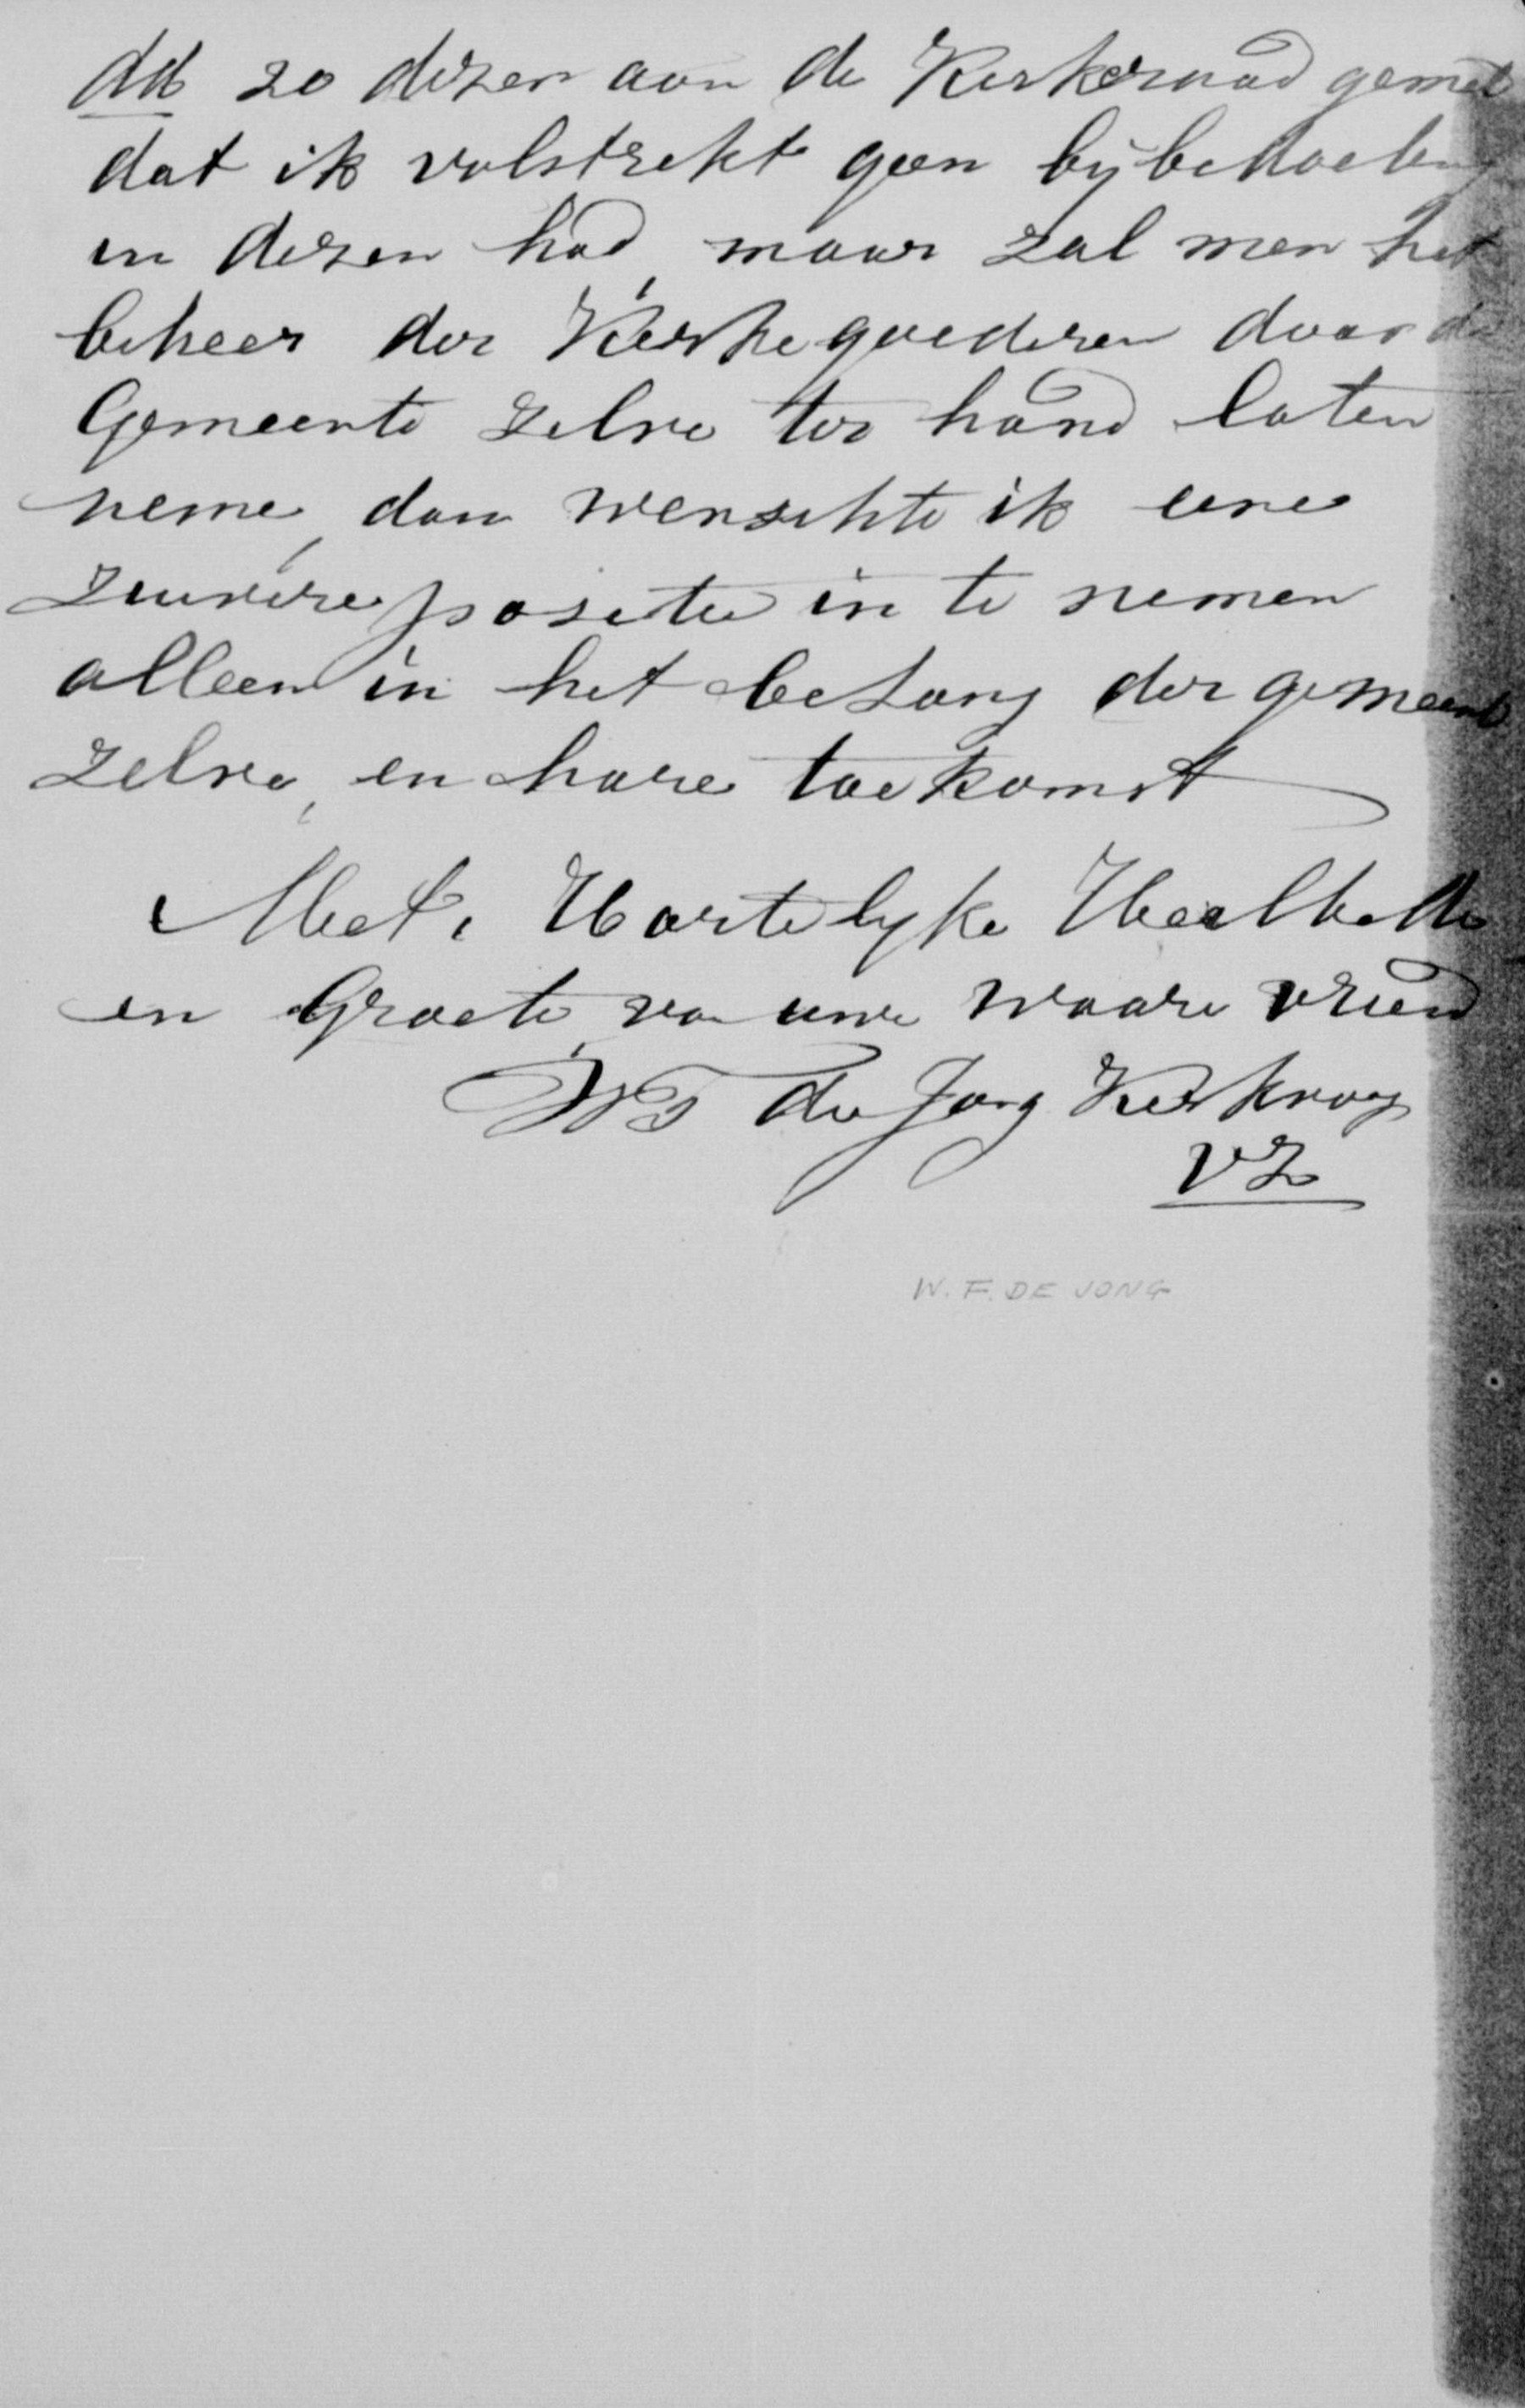 dd 20 dezer aan de Kerkeraad gemel
dat ik volstrekt geen bijbedoeling
in dezen had, maar zal men het
beheer der Kerkegoederen door de
Gemeente zelve ter hand laten
neme, dan wenschte ik eene
zuivere positie in te nemen
alleen in het belang der gemeente
zelve, en hare toekomst
Met Hartelyke Heilbede
en Groete va uwe waare vriend
WF de Jong Kerkvoog
VZ
W. F. DE JONG